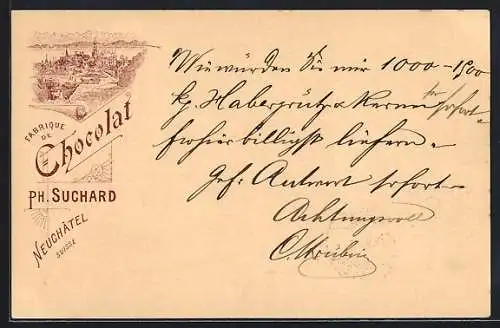 FABRIQUE
DE
Chocolat
PH. SUCHARD
NEUCHÂTEL
SUISSE
Wie würden Sie mir 1000 – 1500
kg Habergrütz Kerne für sofort
franko billigst liefern.
Gef. Antwort sofort
Achtungsvoll